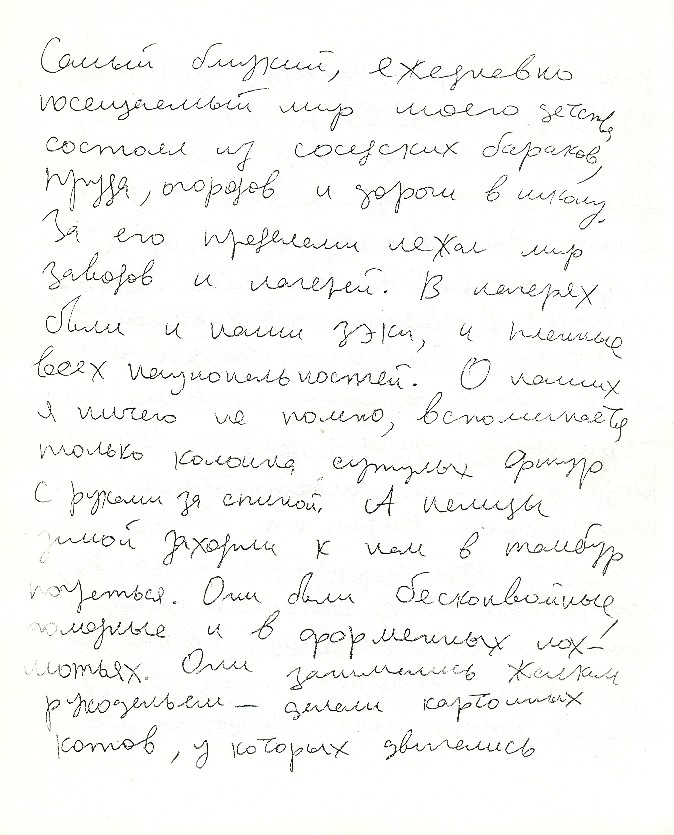 Самый близкий, ежедневно
посещаемый мир моего детства
состоял из соседских бараков,
пруда, огородов и дороги в школу.
За его пределами лежал мир
заводов и лагерей. В лагерях
были и наши зэки, и пленные
всех национальностей. О наших
я ничего не помню, вспоминается
только колонна сутулых фигур
с руками за спиной. А немцы
зимой заходили к нам в тамбур
погреться. Они были бесконвойные,
голодные и в форменных лох-
мотьях. Они занимались жалким
рукодельем – делали картонных
котов, у которых двигались